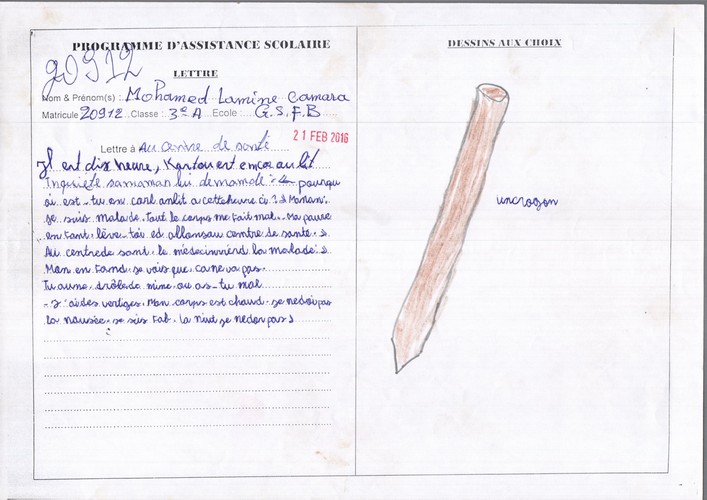 PROGRAMME D'ASSISTANCE SCOLAIRE
20912
LETTRE
Nom & Prénom(s) : Mohamed Lamine Camara
Matricule 20912 Classe : 3e A Ecole : G.S.F.B
21 FEB 2016
Lettre à Au centre de santé
Il est dix heure, Kantou est encore au lit
Inquiéte samaman lui demande : pourqu
oi est-tu en core aulit a cette heure ci ? Maman
je suis malade. Tout le corps me fait mal. Ma pauvre
en fant, lève-toi ed allonsau centre de santé.
Au centrede sant, le médecin la malade :
Mon en fand, je vois que, ca ne va pas.
Tu aune drôlede mine, ou as-tu mal
J'aides vertiges, Mon corps est chaud. je nedorpas
la nausée. je sis Fab. La niut je nedorpas
DESSINS AUX CHOIX
uncrayon